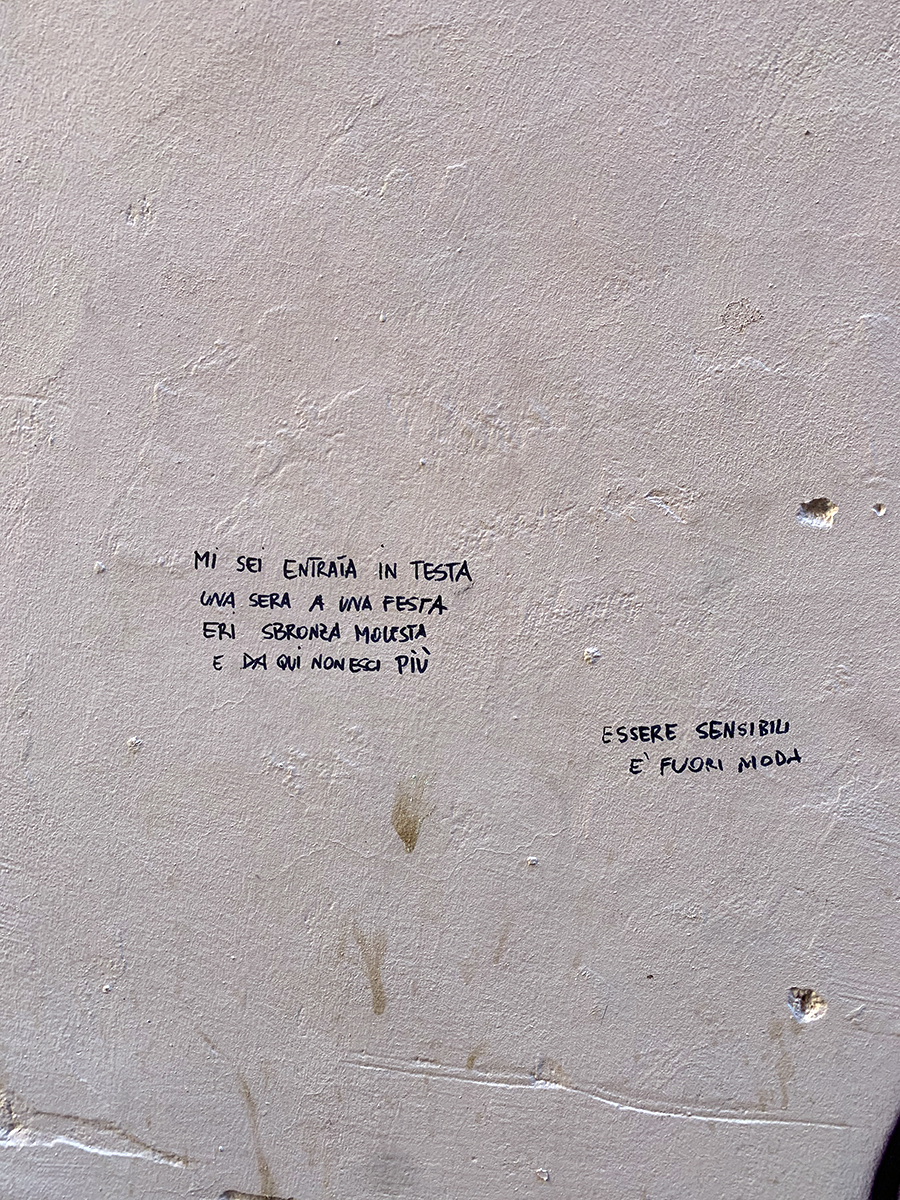 MI SEI ENTRATA IN TESTA
UNA SERA A UNA FESTA
ERI SBRONZA MOLESTA
E DA QUI NON ESCI PIÙ
ESSERE SENSIBILI
E' FUORI MODA